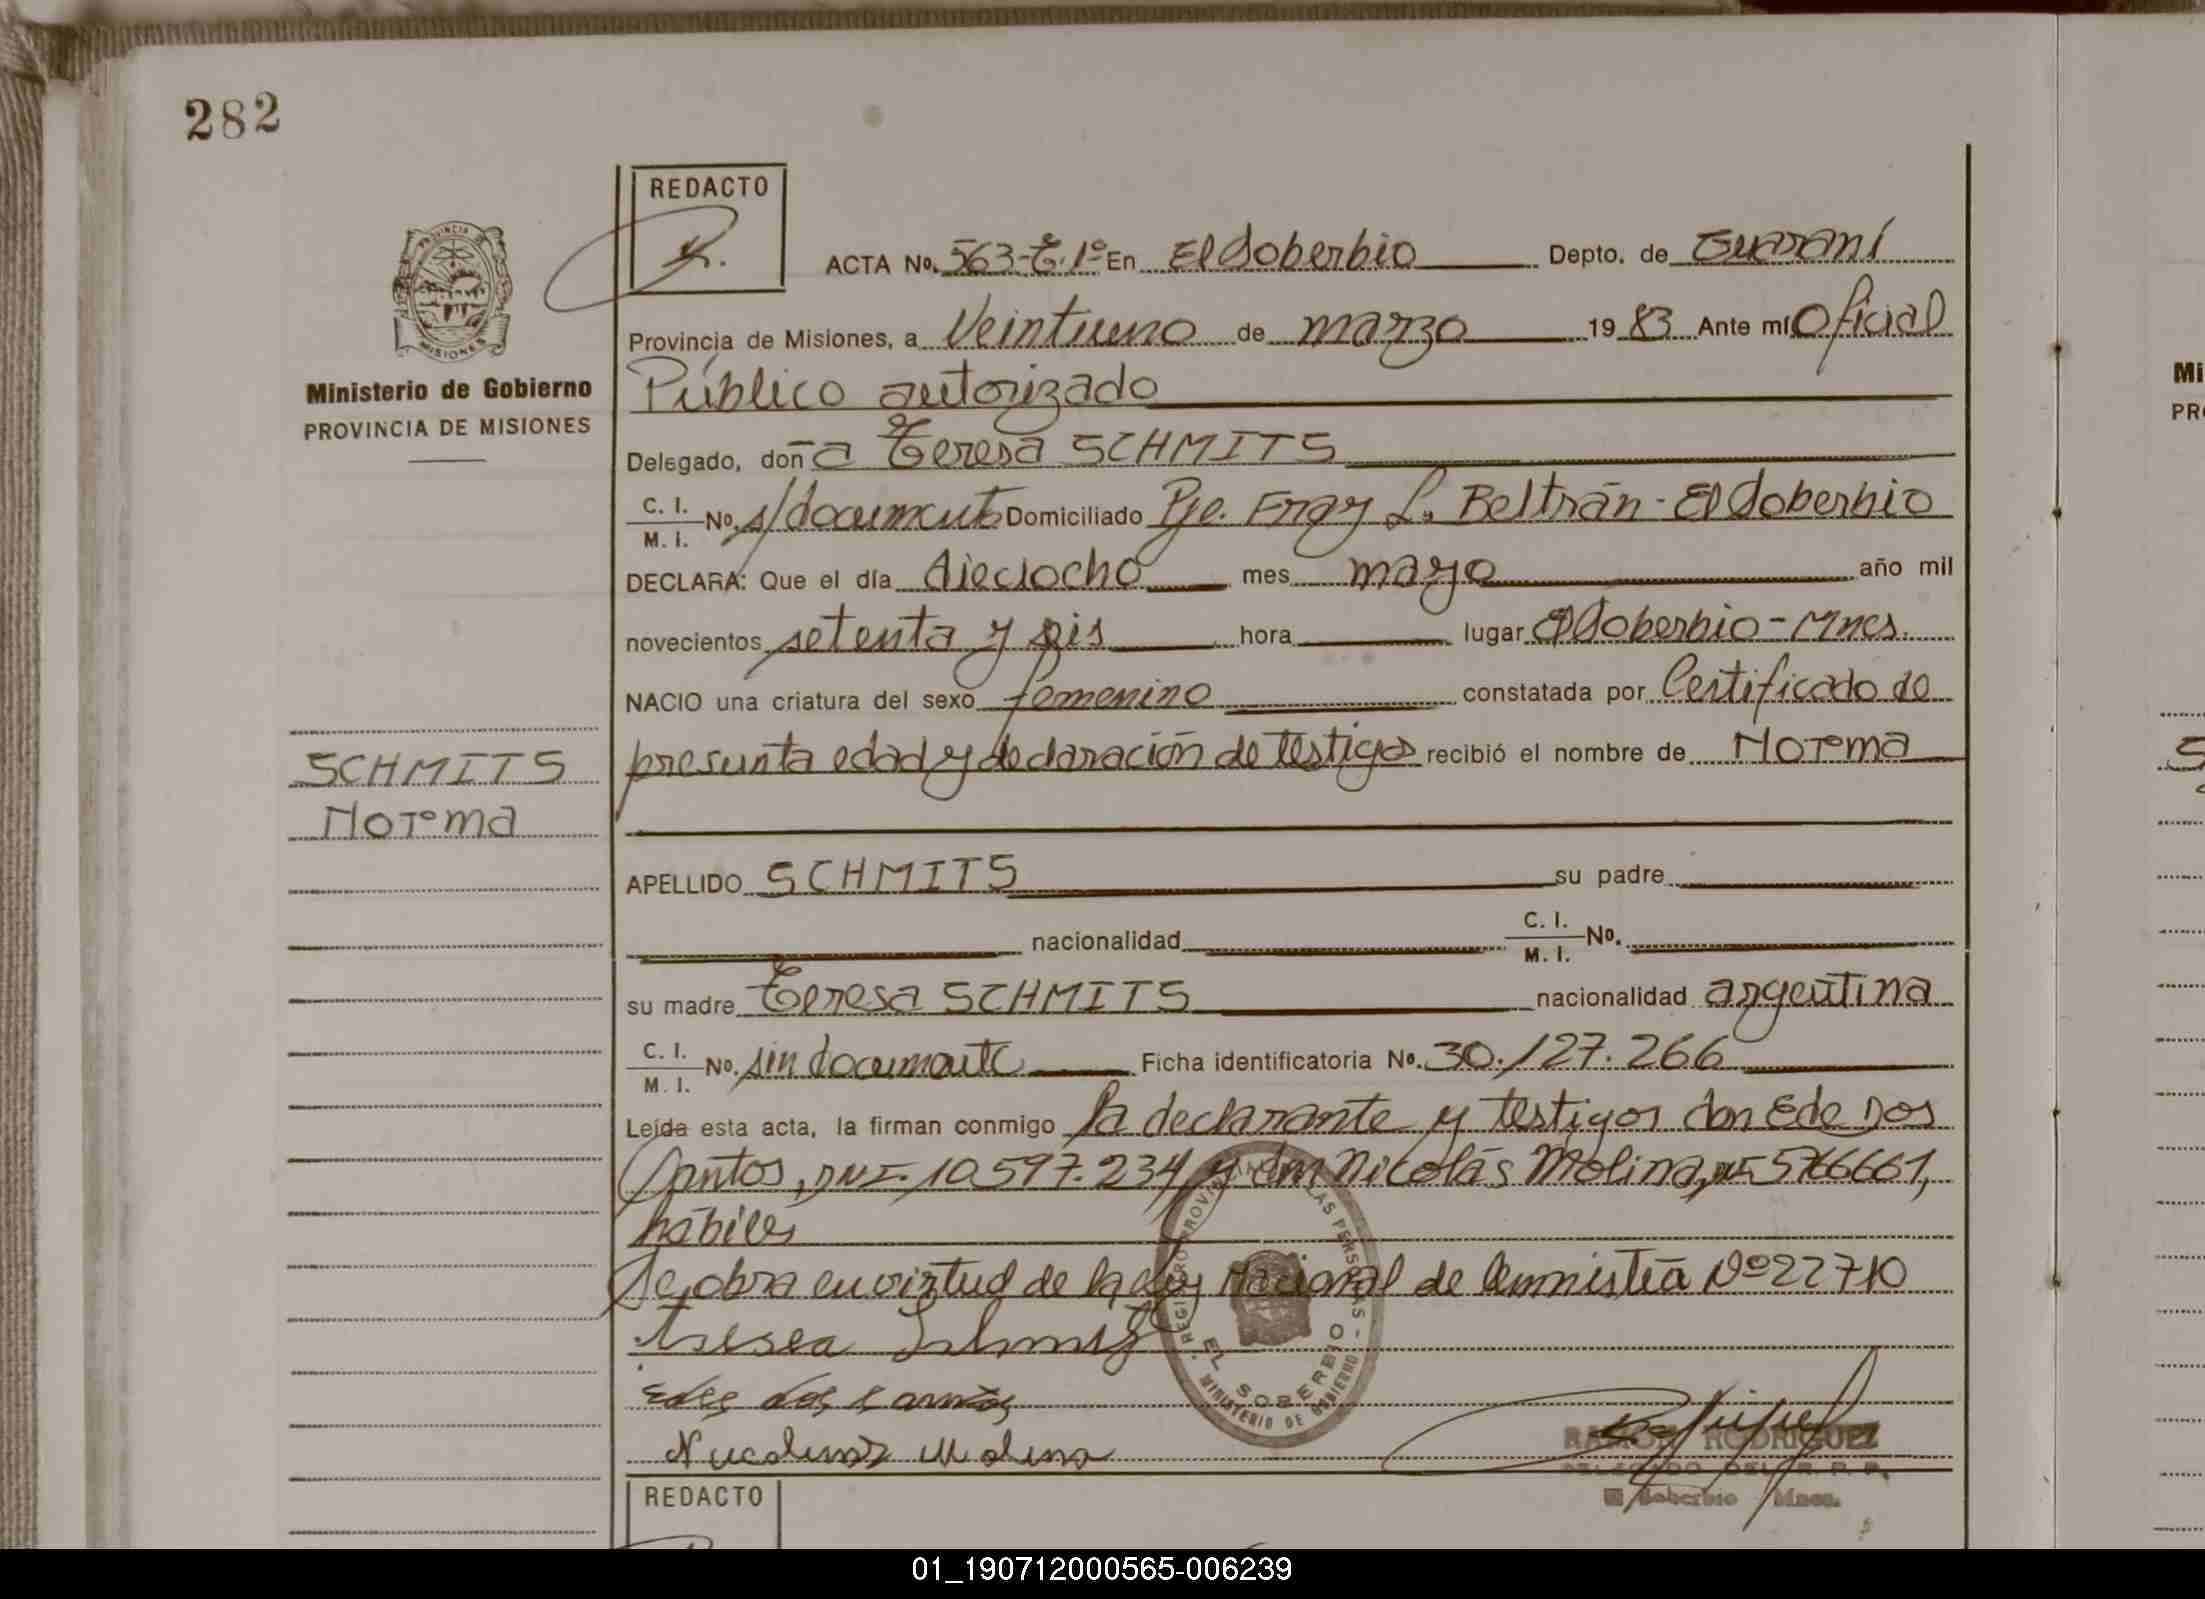 282
REDACTO
ACTA No. 563-T. 1º En El Soberbio Depto. de Guaraní
Provincia de Misiones, a Veintiuno de marzo 19 83 Ante mí Oficial
Público autorizado
Ministerio de Gobierno
PROVINCIA DE MISIONES
Delegado, doña Teresa SCHMITS
C. I. / M. I. No. s/documento Domiciliado Pje. Fray L. Beltrán - El Soberbio
DECLARA: Que el día dieciocho mes mayo año mil
novecientos setenta y seis hora lugar El Soberbio - Mnes.
NACIO una criatura del sexo femenino constatada por Certificado de
presunta edad y declaración de testigos recibió el nombre de Norma
SCHMITS
Norma
APELLIDO SCHMITS su padre
nacionalidad C. I. / M. I. No.
su madre Teresa SCHMITS nacionalidad argentina
C. I. / M. I. No. sin documento Ficha identificatoria No. 30.127.266
Leída esta acta, la firman conmigo la declarante y testigos don Ede Dos
Santos, DNI. 10.597.234 y don Nicolás Molina,
hábiles
Se obra en virtud de la Ley Nacional de Amnistía Nº 22710
Teresa Schmits
Nicolas Molina
REGISTRO PROVINCIAL DE LAS PERSONAS
EL SOBERBIO
MINISTERIO DE GOBIERNO
RAMON RODRIGUEZ
DELEGADO DEL R. P. P.
El Soberbio Mnes.
REDACTO
01_190712000565-006239